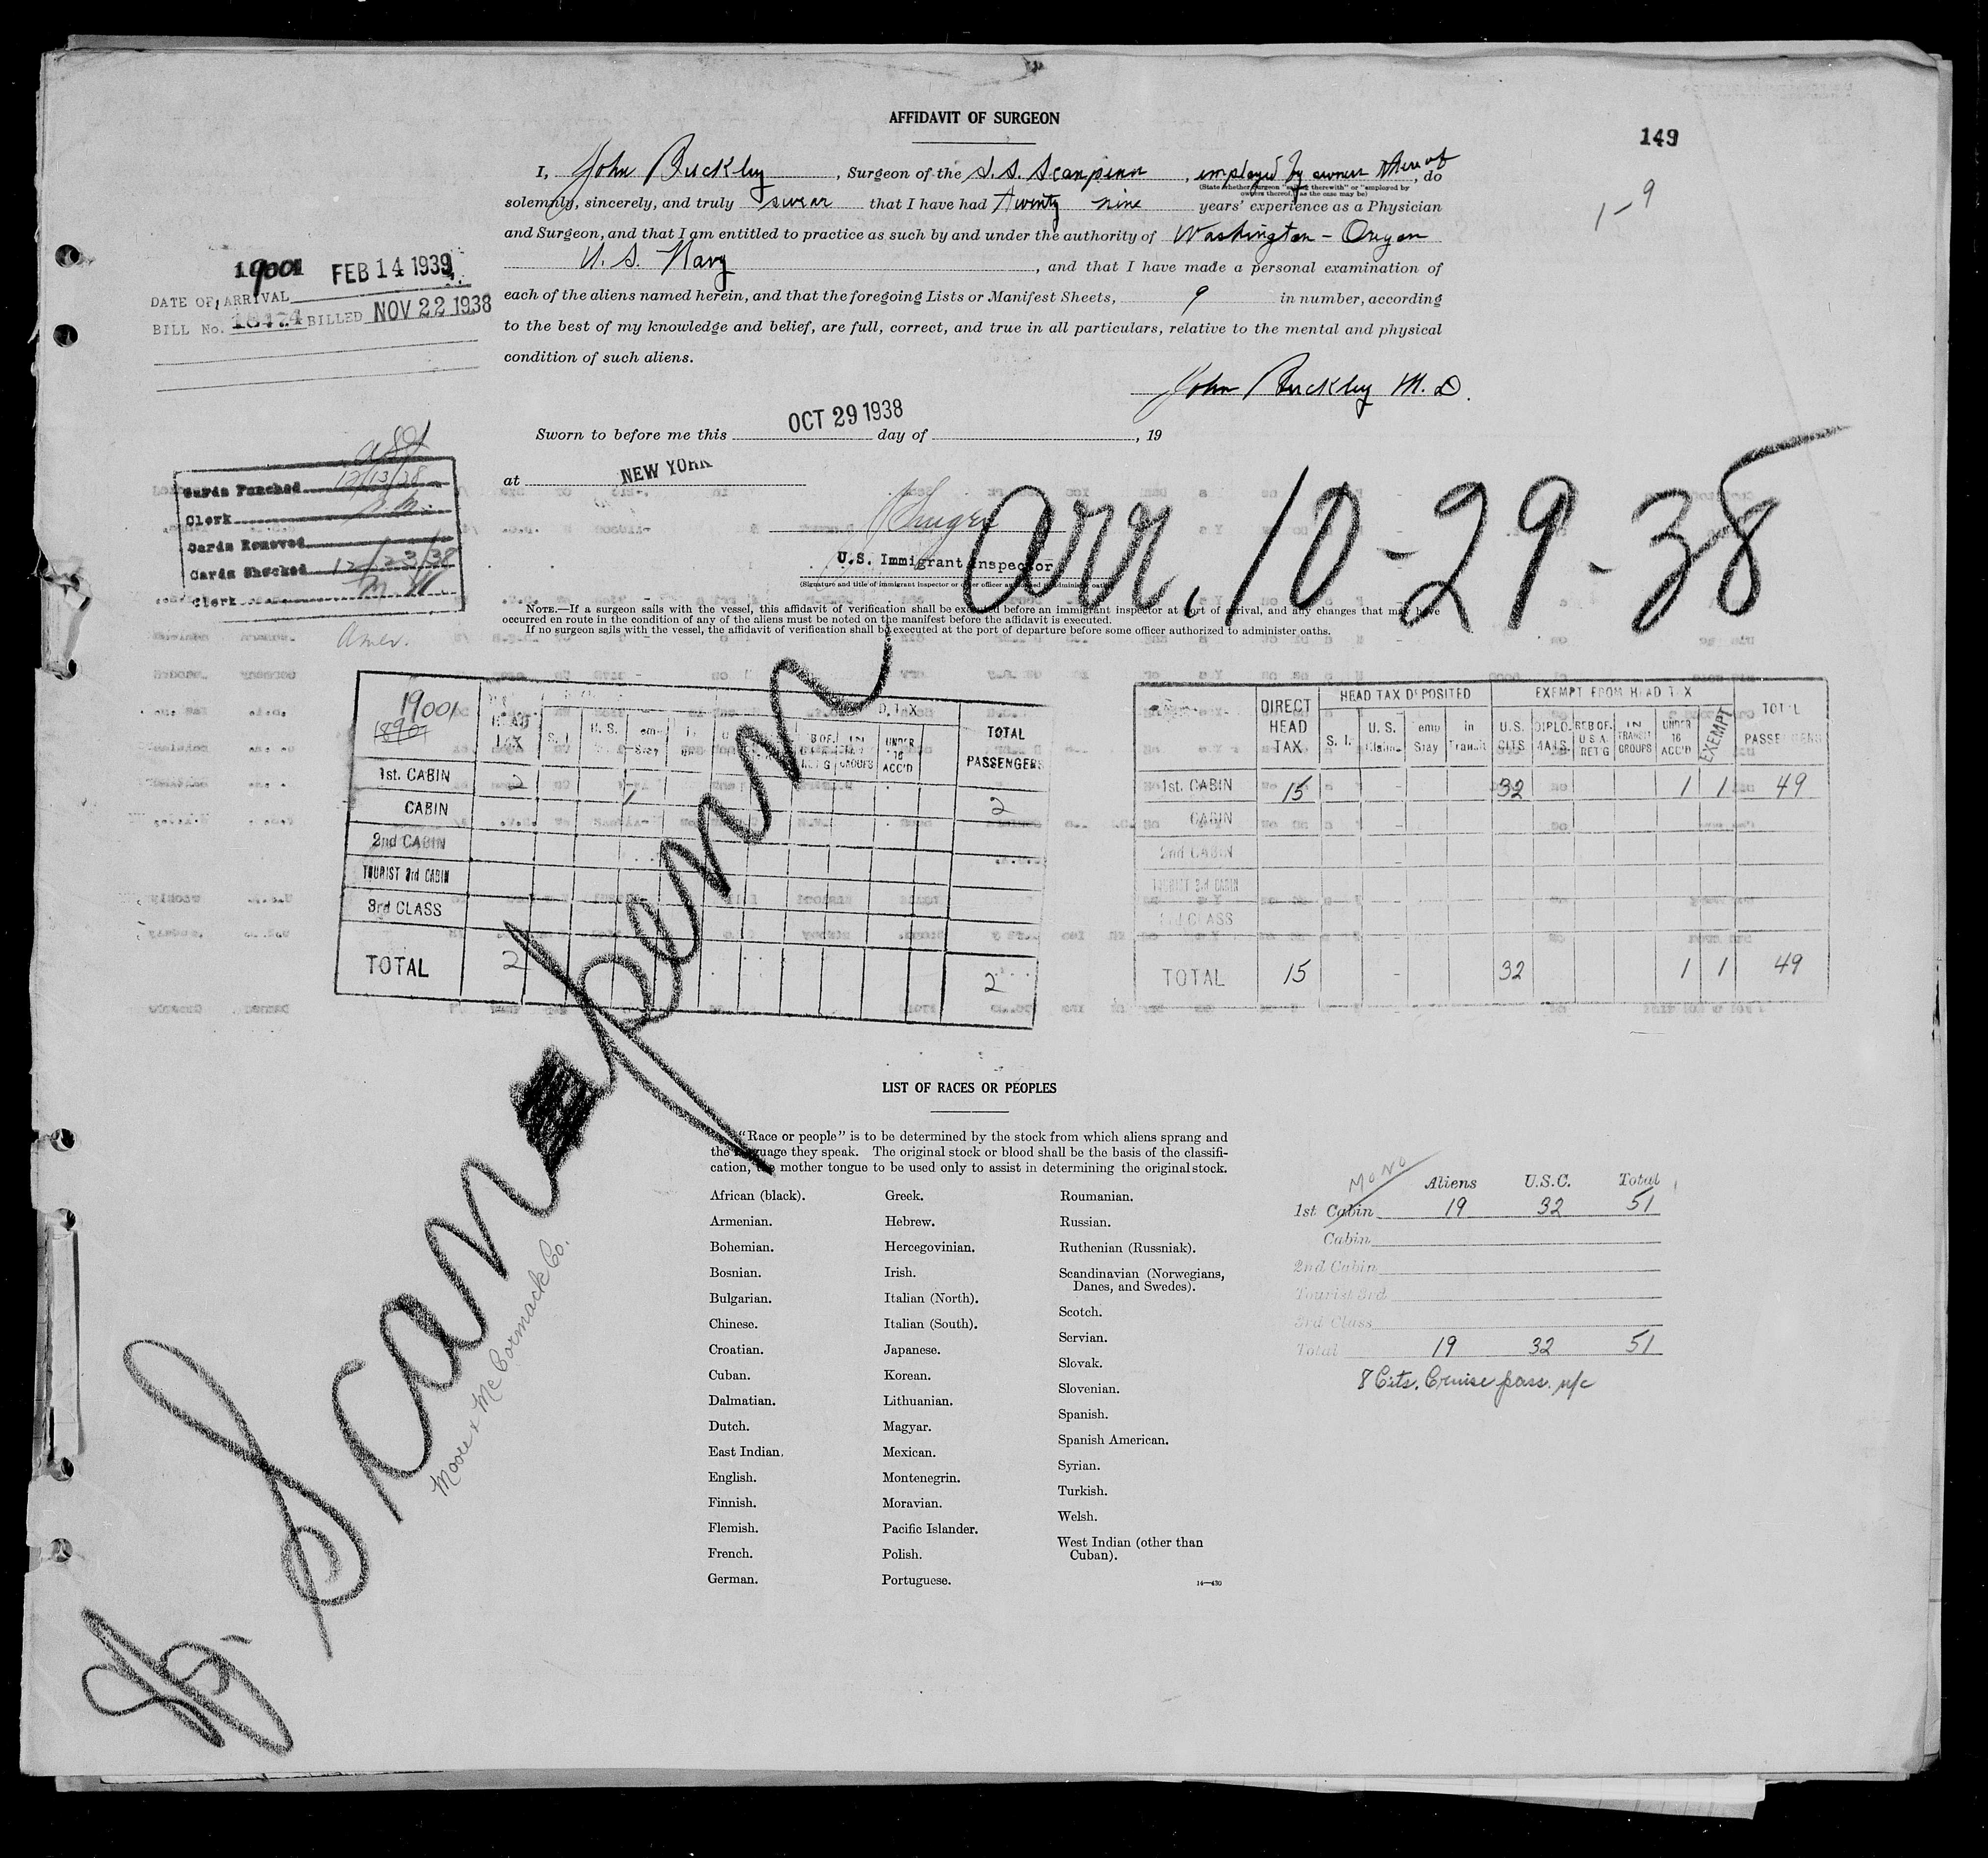 AFFIDAVIT OF SURGEON
149
1-9
I, John Buckley, Surgeon of the S.S. Scanpenn, employed by owners thereof, do
(State whether surgeon "sailing therewith" or "employed by
owners thereof," as the case may be)
solemnly, sincerely, and truly swear that I have had Twenty nine years' experience as a Physician
and Surgeon, and that I am entitled to practice as such by and under the authority of Washington - Oregon
U. S. Navy, and that I have made a personal examination of
each of the aliens named herein, and that the foregoing Lists or Manifest Sheets, 9 in number, according
to the best of my knowledge and belief, are full, correct, and true in all particulars, relative to the mental and physical
condition of such aliens.
John Buckley M.D.
19001 FEB 14 1939
DATE OF ARRIVAL
BILL No. 18474 BILLED NOV 22 1938
Sworn to before me this OCT 29 1938 day of , 19
at NEW YORK
U.S. Immigrant Inspector
(Signature and title of immigrant inspector or other officer authorized to administer oaths)
Arr. 10-29-38
Cards Punched 12/13/38
Clerk
Cards Removed
Cards Checked 12/23/38
Clerk
Amer.
NOTE.—If a surgeon sails with the vessel, this affidavit of verification shall be executed before an immigrant inspector at port of arrival, and any changes that may have
occurred en route in the condition of any of the aliens must be noted on the manifest before the affidavit is executed.
If no surgeon sails with the vessel, the affidavit of verification shall be executed at the port of departure before some officer authorized to administer oaths.
19001
1890
HEAD TAX S. I. U. S. Stay UNDER 16 ACC'D TOTAL PASSENGERS
1st. CABIN 2 2
CABIN
2nd CABIN
TOURIST 3rd CABIN
3rd CLASS
TOTAL 2 2
DIRECT HEAD TAX HEAD TAX DEPOSITED EXEMPT FROM HEAD TAX TOTAL PASSENGERS
S. I. U. S. Claims Temp Stay in Transit U.S. CITS DIPLOMATS RES OF U.S.A. RET'G IN TRANSIT GROUPS UNDER 16 ACC'D EXEMPT
1st. CABIN 15 32 1 1 49
CABIN
2nd CABIN
TOURIST 3rd CABIN
3rd CLASS
TOTAL 15 32 1 1 49
Scanpenn
Moore & McCormack Co.
LIST OF RACES OR PEOPLES
"Race or people" is to be determined by the stock from which aliens sprang and
the language they speak. The original stock or blood shall be the basis of the classifi-
cation, the mother tongue to be used only to assist in determining the original stock.
African (black).
Armenian.
Bohemian.
Bosnian.
Bulgarian.
Chinese.
Croatian.
Cuban.
Dalmatian.
Dutch.
East Indian.
English.
Finnish.
Flemish.
French.
German.
Greek.
Hebrew.
Hercegovinian.
Irish.
Italian (North).
Italian (South).
Japanese.
Korean.
Lithuanian.
Magyar.
Mexican.
Montenegrin.
Moravian.
Pacific Islander.
Polish.
Portuguese.
Roumanian.
Russian.
Ruthenian (Russniak).
Scandinavian (Norwegians,
Danes, and Swedes).
Scotch.
Servian.
Slovak.
Slovenian.
Spanish.
Spanish American.
Syrian.
Turkish.
Welsh.
West Indian (other than
Cuban).
14—430
MONO
Aliens U.S.C. Total
1st Cabin 19 32 51
Cabin
2nd Cabin
Tourist 3rd
3rd Class
Total 19 32 51
8 Cits. Cruise pass. n/c